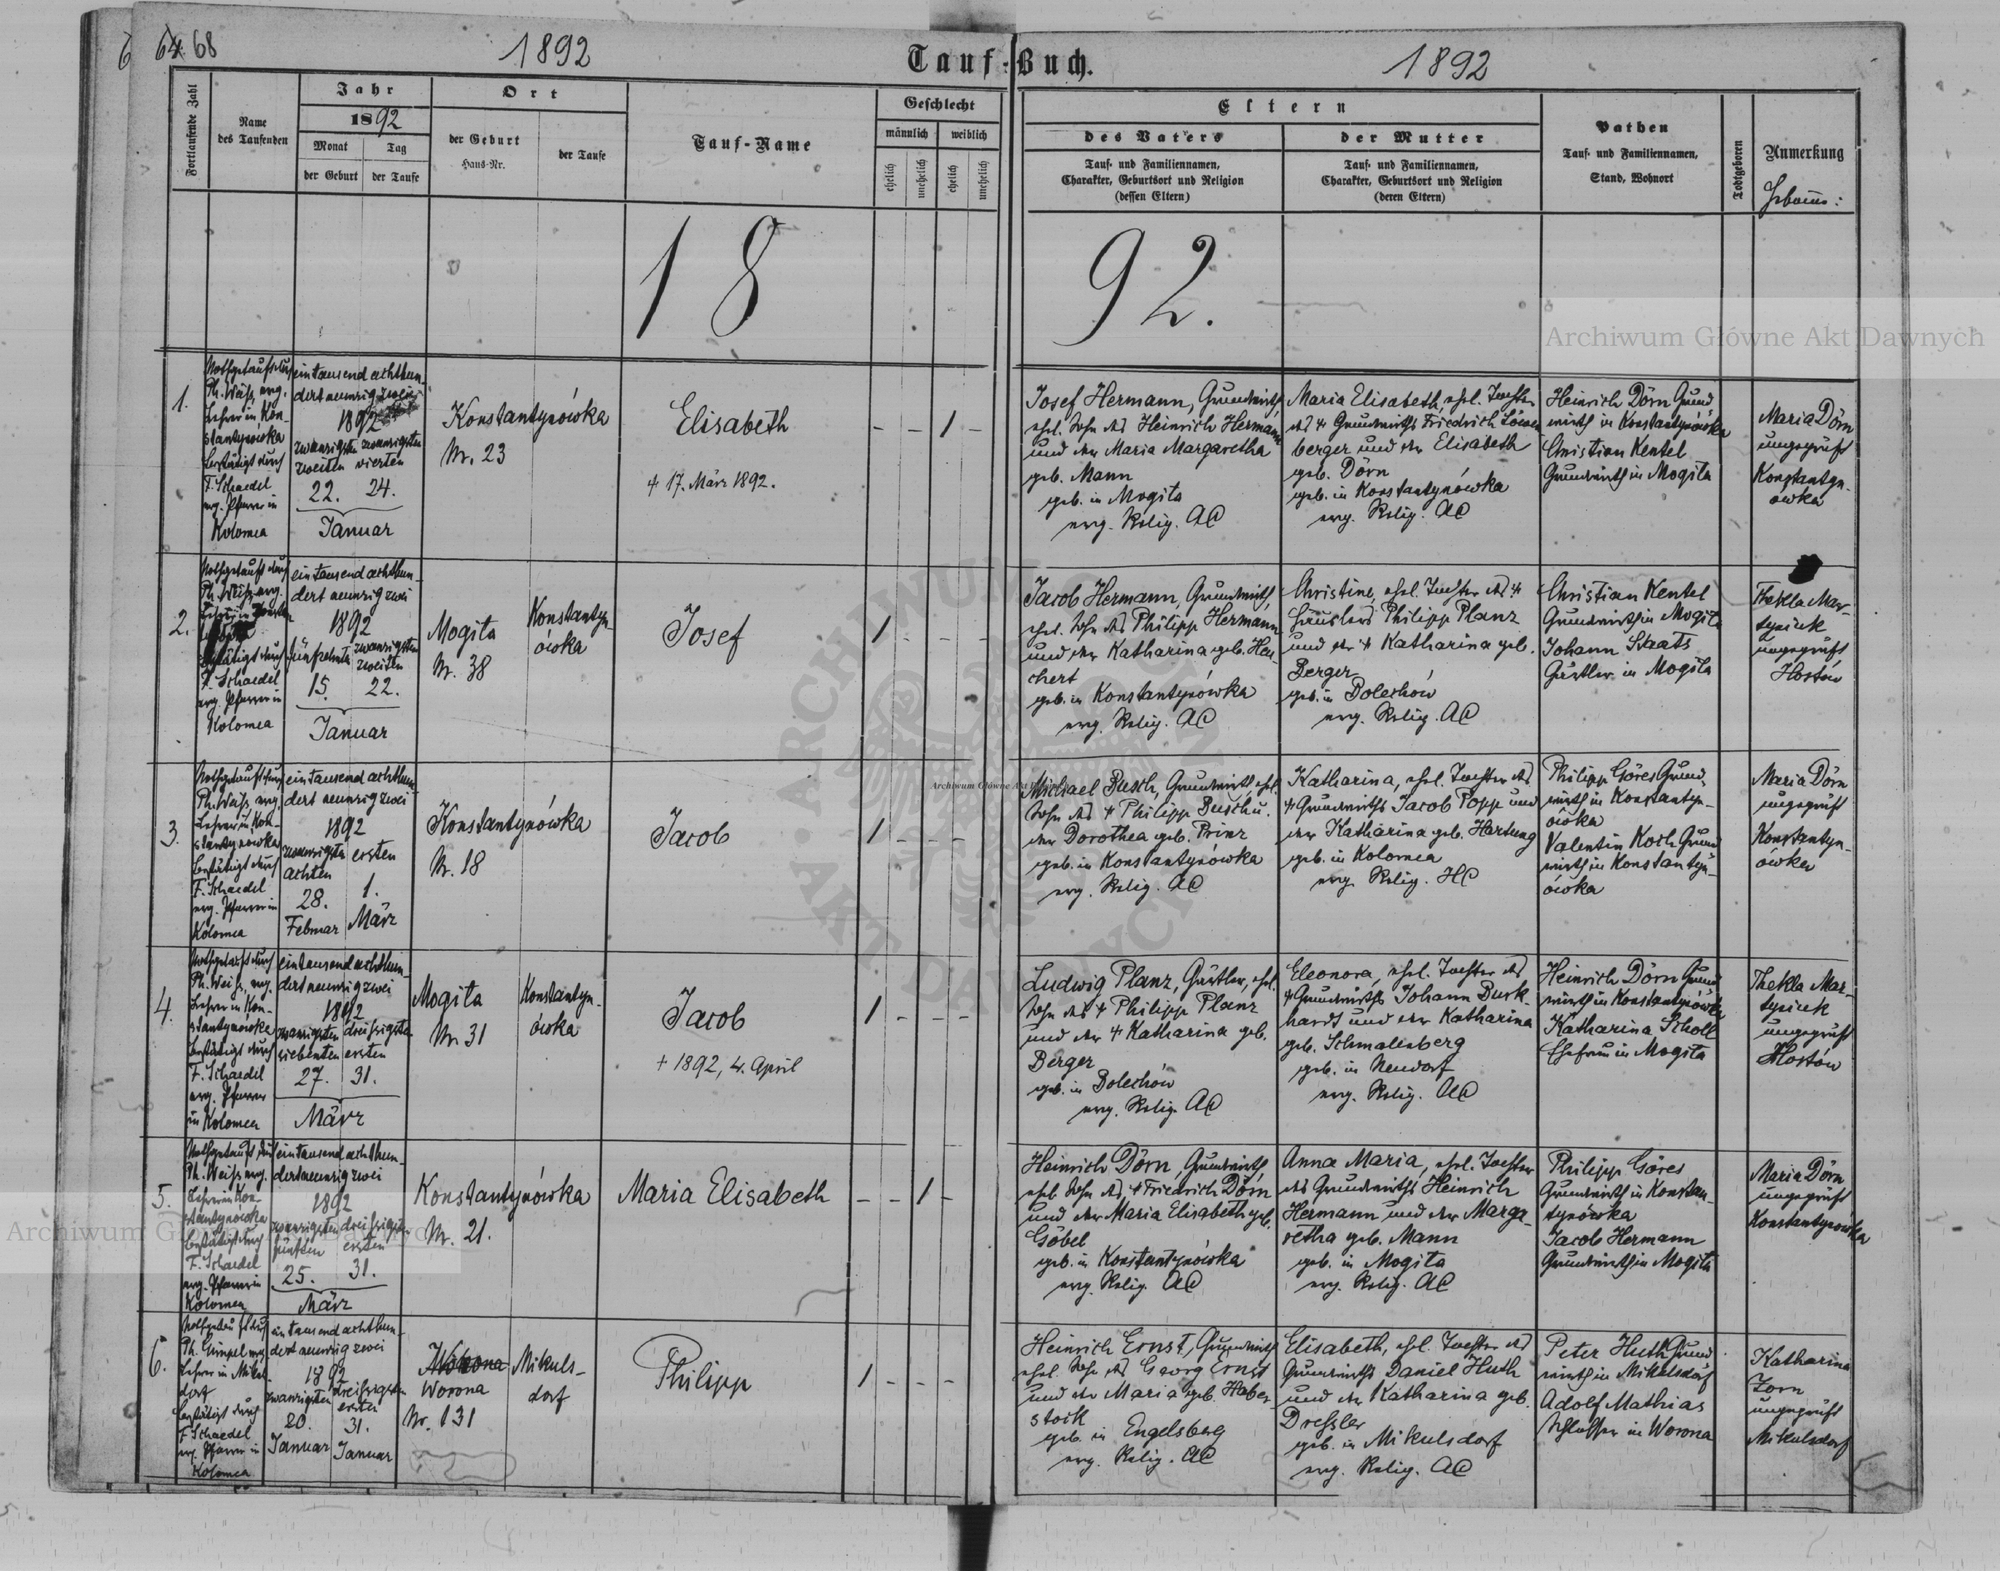 64. 68
1892
Tauf-Buch.
1892
Fortlaufende Zahl
Name
des Taufenden
Jahr
1892
Monat
Tag
der Geburt
der Taufe
Ort
der Geburt
Haus-Nr.
der Taufe
Tauf-Name
Geschlecht
männlich
weiblich
ehelich
unehelich
ehelich
unehelich
Eltern
des Vaters
Tauf- und Familiennamen,
Charakter, Geburtsort und Religion
(dessen Eltern)
der Mutter
Tauf- und Familiennamen,
Charakter, Geburtsort und Religion
(deren Eltern)
Pathen
Tauf- und Familiennamen,
Stand, Wohnort
Todtgeboren
Anmerkung
Hebamme:
18
92.
1.
Nothgetauft durch
Ph. Weiß, evg.
Lehrer in Kon-
stantynówka
bestätigt durch
F. Schaedel
evg. Pfarrer in
Kolomea
eintausend achthun-
dert neunzig zwei
1892
zwanzigsten zwanzigsten
zweiten vierten
22. 24.
Januar
Konstantynówka
Nr. 23
Elisabeth
+ 17. März 1892.
- - 1 -
Josef Hermann, Grundwirth
ehel. Sohn des Heinrich Hermann
und der Maria Margaretha
geb. Mann
geb. in Mogiła
evg. Relig. AC
Maria Elisabeth, ehel. Tochter
des + Grundwirths Friedrich Löwen
berger und der Elisabeth
geb. Dörn
geb. in Konstantynówka
evg. Relig. AC
Heinrich Dörn Grund
wirth in Konstantynówka
Christian Kentel
Grundwirth in Mogiła
Maria Dörn
ungeprüft
Konstantyn-
ówka
2.
Nothgetauft durch
Ph. Weiß, evg.
bestätigt durch
F. Schaedel
evg. Pfarrer in
Kolomea
eintausend achthun-
dert neunzig zwei
1892
fünfzehnten zwanzigsten
zweiten
15. 22.
Januar
Mogiła
Nr. 38
Konstantyn
ówka
Josef
1 - - -
Jacob Hermann, Grundwirth,
ehel. Sohn des Philipp Hermann
und der Katharina geb. Heu-
chert
geb. in Konstantynówka
evg. Relig. AC
Christine, ehel. Tochter des +
Häuslers Philipp Planz
und der + Katharina geb.
Berger
geb. in Bolechów
evg. Relig. AC
Christian Kentel
Grundwirth in Mogiła
Johann Staats
Gärtler in Mogiła
Thekla Mar-
tysiek
ungeprüft
Hostów
3.
Nothgetauft durch
Ph. Weiß, evg.
Lehrer in Kon-
stantynówka
bestätigt durch
F. Schaedel
evg. Pfarrer in
Kolomea
eintausend achthun-
dert neunzig zwei
1892
zwanzigsten ersten
achten
28. 1.
Februar März
Konstantynówka
Nr. 18
Jacob
1 - - -
Michael Busch, Grundwirth, ehel.
Sohn des + Philipp Busch u.
der Dorothea geb. Prinz
geb. in Konstantynówka
evg. Relig. AC
Katharina, ehel. Tochter des
+ Grundwirths Jacob Popp und
der Katharina geb. Hartung
geb. in Kolomea
evg. Relig. HC
Philipp Göres Grund-
wirth in Konstantyn-
ówka
Valentin Koch Grund
wirth in Konstantyn-
ówka
Maria Dörn
ungeprüft
Konstantyn-
ówka
4.
Nothgetauft durch
Ph. Weiß, evg.
Lehrer in Kon-
stantynówka
bestätigt durch
F. Schaedel
evg. Pfarrer
in Kolomea
eintausend achthun-
dert neunzig zwei
1892
zwanzigsten dreißigsten
siebenten ersten
27. 31.
März
Mogiła
Nr. 31
Konstantyn-
ówka
Jacob
+ 1892, 4. April
1 - - -
Ludwig Planz, Gärtler, ehel.
Sohn des + Philipp Planz
und der + Katharina geb.
Berger
geb. in Bolechów
evg. Relig. AC
Eleonora, ehel. Tochter des
+ Grundwirths Johann Burk
hardt und der Katharina
geb. Schmalenberg
geb. in Neudorf
evg. Relig. AC
Heinrich Dörn Grund
wirth in Konstantynówka
Katharina Scholl
Ehefrau in Mogiła
Thekla Mar-
tysiek
ungeprüft
Hostów
5.
Nothgetauft durch
Ph. Weiß, evg.
Lehrer in Kon-
stantynówka
bestätigt durch
F. Schaedel
evg. Pfarrer in
Kolomea
eintausend achthun-
dert neunzig zwei
1892
zwanzigsten dreißigsten
fünften ersten
25. 31.
März
Konstantynówka
Nr. 21.
Maria Elisabeth
- - 1 -
Heinrich Dörn, Grundwirth,
ehel. Sohn des + Friedrich Dörn
und der Maria Elisabeth geb.
Göbel
geb. in Konstantynówka
evg. Relig. AC
Anna Maria, ehel. Tochter
des Grundwirths Heinrich
Hermann und der Marga-
retha geb. Mann
geb. in Mogiła
evg. Relig. AC
Philipp Göres
Grundwirth in Konstan-
tynówka
Jacob Hermann
Grundwirth in Mogiła
Maria Dörn
ungeprüft
Konstantynówka
6.
Nothgetauft durch
Ph. Gimpel evg.
Lehrer in Mikuls-
dorf
bestätigt durch
F. Schaedel
evg. Pfarrer in
Kolomea
eintausend achthun-
dert neunzig zwei
1892
zwanzigsten dreißigsten
ersten
20. 31.
Januar Januar
Worona
Nr. 131
Mikuls-
dorf
Philipp
1 - - -
Heinrich Ernst, Grundwirth
ehel. Sohn des Georg Ernst
und der Maria geb. Haber-
stock
geb. in Engelsberg
evg. Relig. AC
Elisabeth, ehel. Tochter des
Grundwirths Daniel Huth
und der Katharina geb.
Dreßler
geb. in Mikulsdorf
evg. Relig. AC
Peter Huth Grund-
wirth in Mikulsdorf
Adolf Mathias
Schlosser in Worona
Katharina
Zorn
ungeprüft
Mikulsdorf
Archiwum Główne Akt Dawnych
Archiwum Główne Akt Dawnych